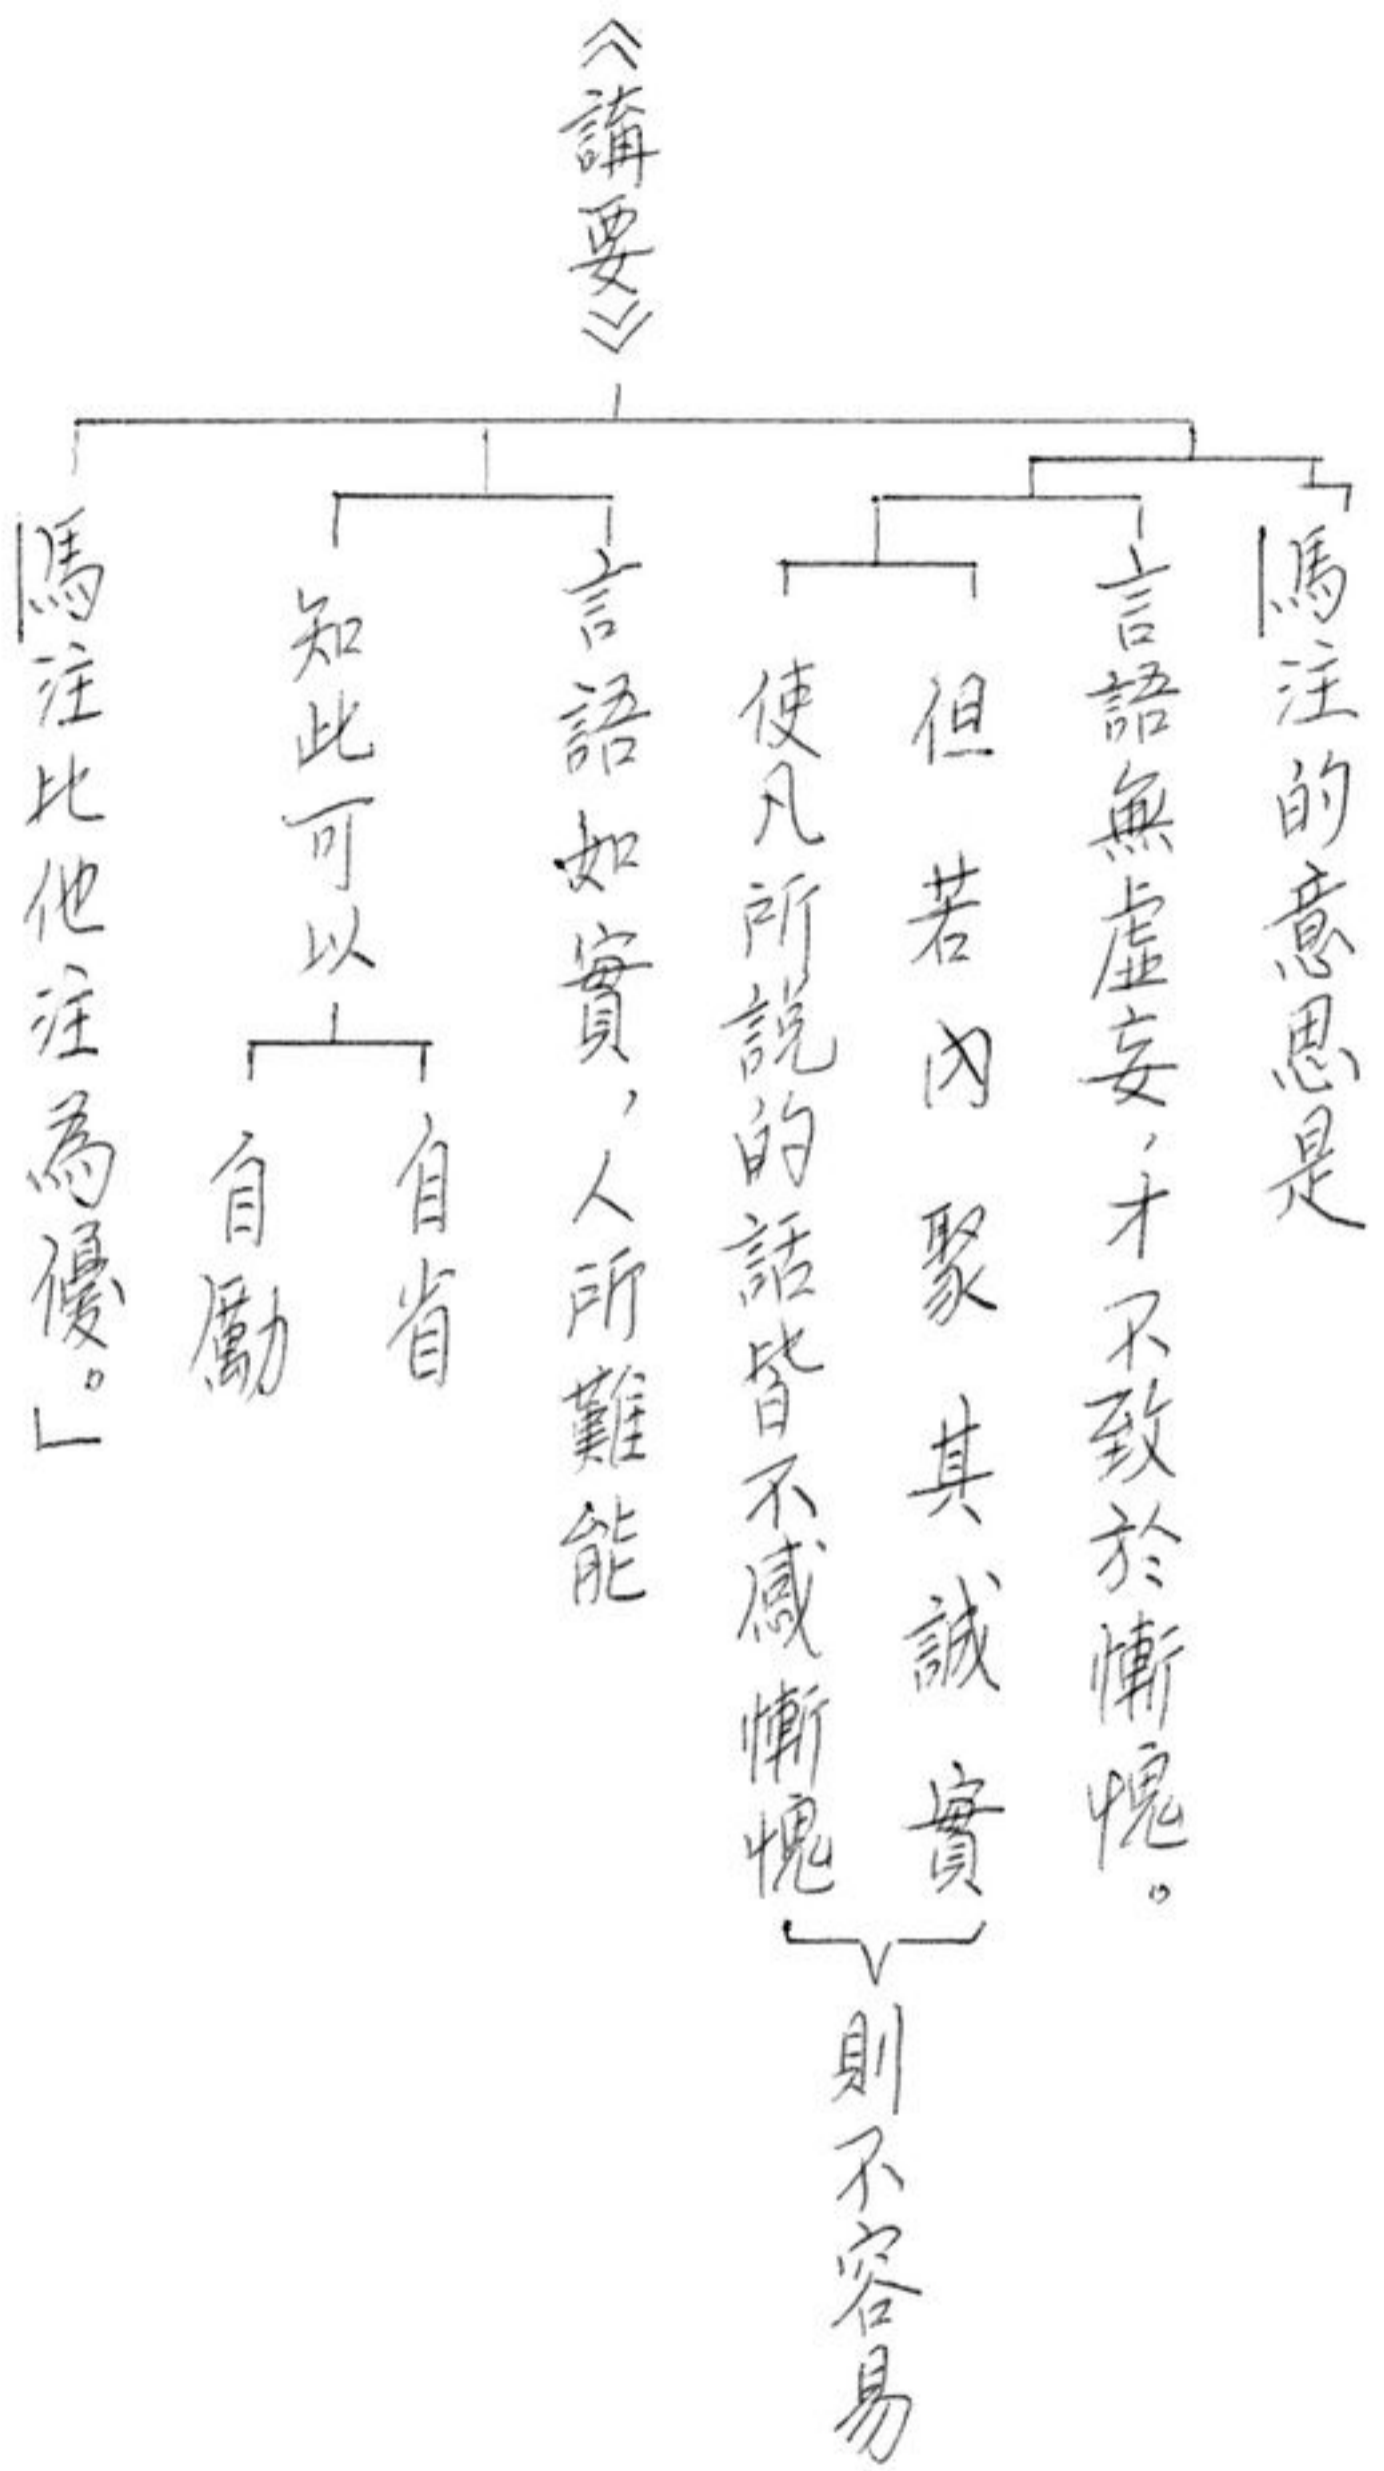 《講要》
「馬注的意思是
言語無虛妄，才不致於慚愧。
但若內聚其誠實
使凡所說的話皆不感慚愧
則不容易
言語如實，人所難能
知此可以
自省
自勵
馬注比他注為優。」